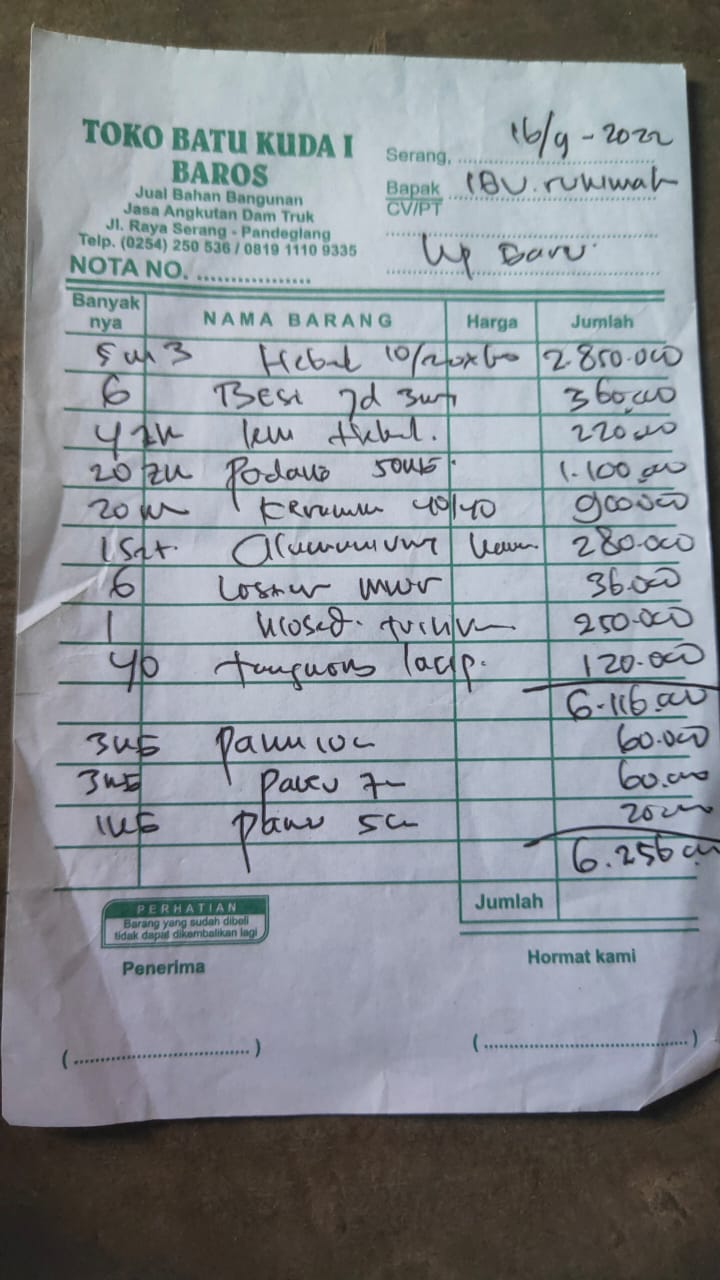 TOKO BATU KUDA I
BAROS
Jual Bahan Bangunan
Jasa Angkutan Dam Truk
Jl. Raya Serang - Pandeglang
Telp. (0254) 250 536 / 0819 1110 9335
NOTA NO. ..................
Serang, 16/9 - 2022
Bapak
CV/PT
IBU. rukimah
Banyak nya NAMA BARANG Harga Jumlah
5 m3 Hebel 10/20x60 2.850.000
6 Besi 360.000
4 lem Hebel. 220.000
20 1.100.000
20 m 40/40 900.000
1 Set. Alumunium 280.000
6 36.000
1 klosed. 250.000
40 120.000
6.116.000
3 kg paku 10c 60.000
3 kg paku 7c 60.000
1 kg paku 5c 20.000
6.256.000
Jumlah
PERHATIAN
Barang yang sudah dibeli
tidak dapat dikembalikan lagi
Penerima
Hormat kami
(..............................) (..............................)